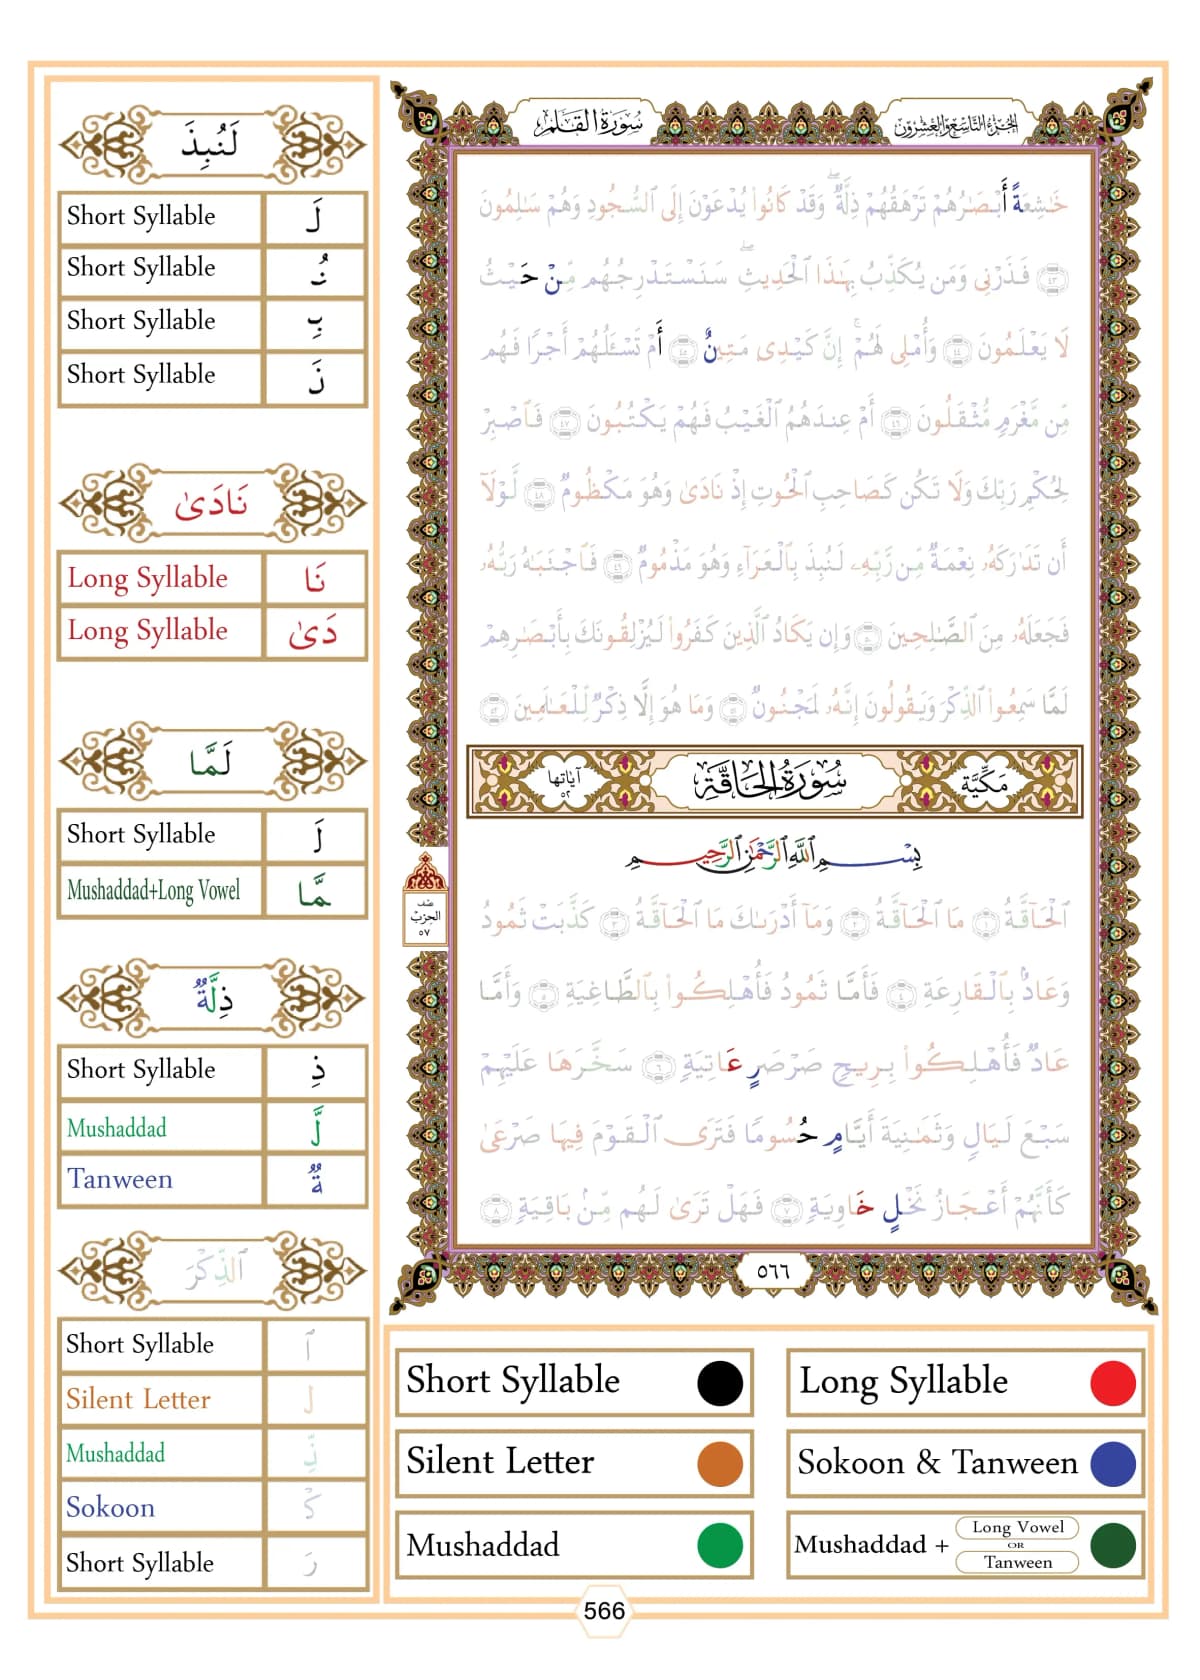 سُورَةُ الْقَلَمِ
الجُزْءُ التَّاسِعُ وَالعِشْرُونَ
خَٰشِعَةً أَبْصَٰرُهُمْ تَرْهَقُهُمْ ذِلَّةٌۖ وَقَدْ كَانُوا۟ يُدْعَوْنَ إِلَى ٱلسُّجُودِ وَهُمْ سَٰلِمُونَ
٤٣ فَذَرْنِى وَمَن يُكَذِّبُ بِهَٰذَا ٱلْحَدِيثِۖ سَنَسْتَدْرِجُهُم مِّنْ حَيْثُ
لَا يَعْلَمُونَ ٤٤ وَأُمْلِى لَهُمْۚ إِنَّ كَيْدِى مَتِينٌ ٤٥ أَمْ تَسْـَٔلُهُمْ أَجْرًا فَهُم
مِّن مَّغْرَمٍ مُّثْقَلُونَ ٤٦ أَمْ عِندَهُمُ ٱلْغَيْبُ فَهُمْ يَكْتُبُونَ ٤٧ فَٱصْبِرْ
لِحُكْمِ رَبِّكَ وَلَا تَكُن كَصَاحِبِ ٱلْحُوتِ إِذْ نَادَىٰ وَهُوَ مَكْظُومٌ ٤٨ لَّوْلَآ
أَن تَدَٰرَكَهُۥ نِعْمَةٌ مِّن رَّبِّهِۦ لَنُبِذَ بِٱلْعَرَآءِ وَهُوَ مَذْمُومٌ ٤٩ فَٱجْتَبَٰهُ رَبُّهُۥ
فَجَعَلَهُۥ مِنَ ٱلصَّٰلِحِينَ ٥٠ وَإِن يَكَادُ ٱلَّذِينَ كَفَرُوا۟ لَيُزْلِقُونَكَ بِأَبْصَٰرِهِمْ
لَمَّا سَمِعُوا۟ ٱلذِّكْرَ وَيَقُولُونَ إِنَّهُۥ لَمَجْنُونٌ ٥١ وَمَا هُوَ إِلَّا ذِكْرٌ لِّلْعَٰلَمِينَ ٥٢
مَكِّيَّة سُورَةُ الحَاقَّةِ آيَاتها ٥٢
بِسْمِ ٱللَّهِ ٱلرَّحْمَٰنِ ٱلرَّحِيمِ
ٱلْحَآقَّةُ ١ مَا ٱلْحَآقَّةُ ٢ وَمَآ أَدْرَىٰكَ مَا ٱلْحَآقَّةُ ٣ كَذَّبَتْ ثَمُودُ
وَعَادٌۢ بِٱلْقَارِعَةِ ٤ فَأَمَّا ثَمُودُ فَأُهْلِكُوا۟ بِٱلطَّاغِيَةِ ٥ وَأَمَّا
عَادٌ فَأُهْلِكُوا۟ بِرِيحٍ صَرْصَرٍ عَاتِيَةٍ ٦ سَخَّرَهَا عَلَيْهِمْ
سَبْعَ لَيَالٍ وَثَمَٰنِيَةَ أَيَّامٍ حُسُومًا فَتَرَى ٱلْقَوْمَ فِيهَا صَرْعَىٰ
كَأَنَّهُمْ أَعْجَازُ نَخْلٍ خَاوِيَةٍ ٧ فَهَلْ تَرَىٰ لَهُم مِّنۢ بَاقِيَةٍ ٨
نصف
الحزب
٥٧
٥٦٦
لَنُبِذَ
Short Syllable لَ
Short Syllable نُ
Short Syllable بِ
Short Syllable ذَ
نَادَىٰ
Long Syllable نَا
Long Syllable دَىٰ
لَمَّا
Short Syllable لَ
Mushaddad+Long Vowel مَّا
ذِلَّةٌ
Short Syllable ذِ
Mushaddad لَّ
Tanween ةٌ
ٱلذِّكْرَ
Short Syllable ٱ
Silent Letter ل
Mushaddad ذِّ
Sokoon كْ
Short Syllable رَ
Short Syllable
Long Syllable
Silent Letter
Sokoon & Tanween
Mushaddad
Mushaddad + Long Vowel OR Tanween
566